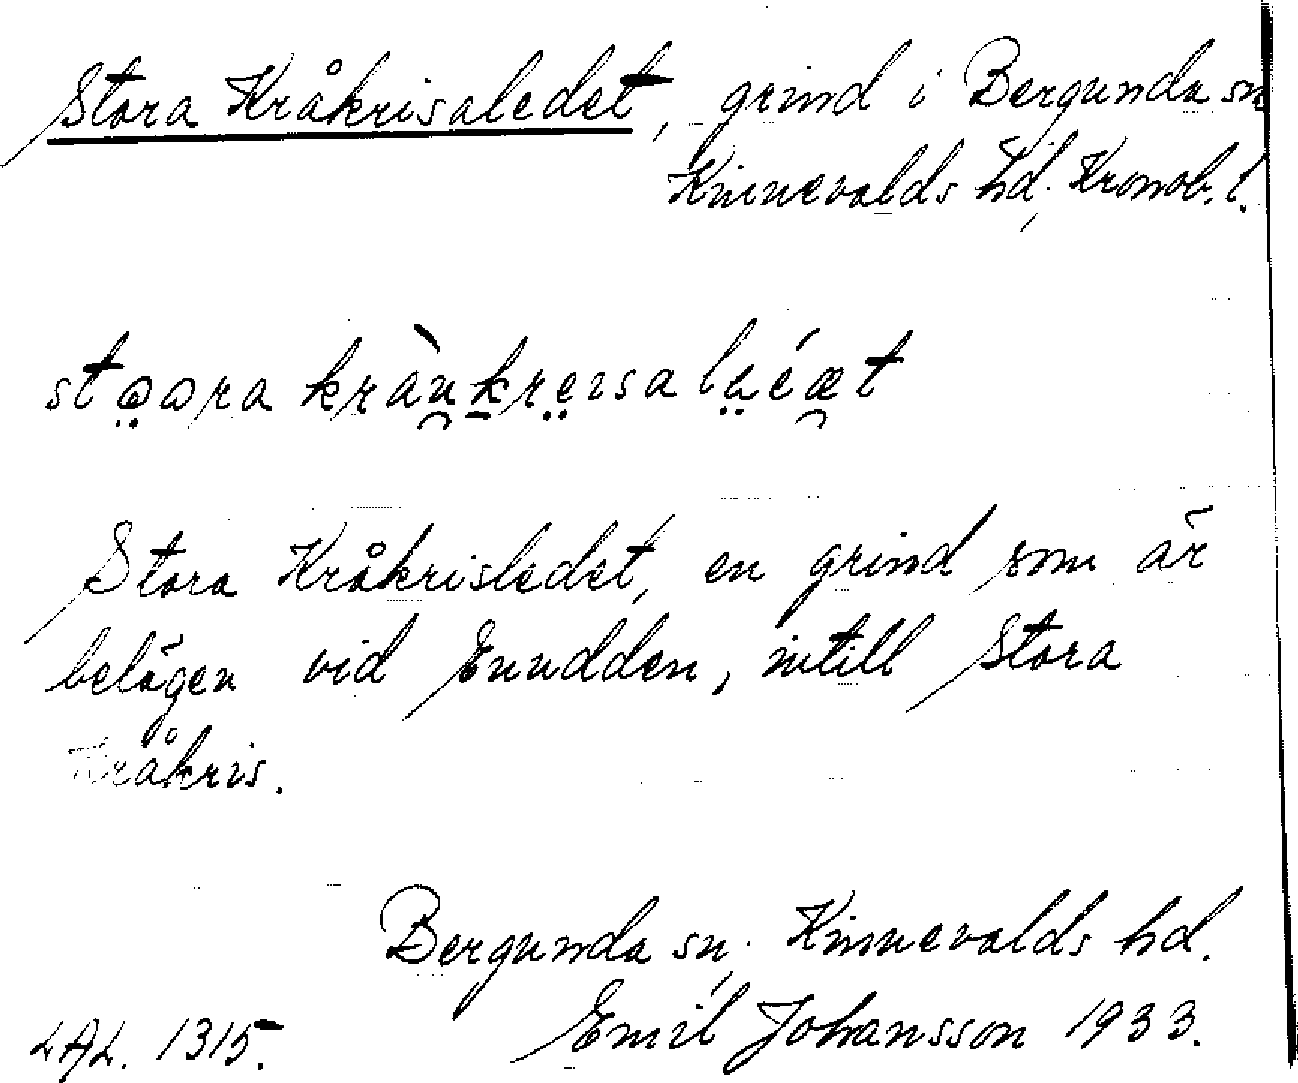 Stora Kråkrisaledet, grind i Bergunda sn
Kinnevalds hd; Kronob. l.
Stora Kråkrisledet, en grind som är
belägen vid Enudden, intill Stora
Kråkris.
Bergunda sn; Kinnevalds hd.
Emil Johansson 1933.
LAL. 1315.